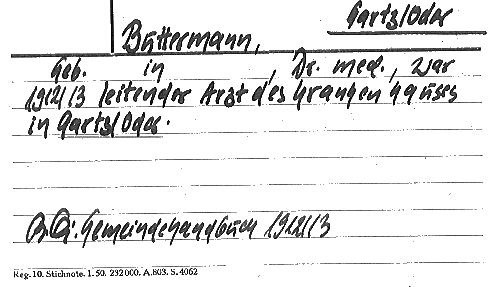 Gartz/Oder
Büttermann,
Geb. in , Dr. med., war
1912/13 leitender Arzt des Krankenhauses
in Gartz/Oder.
Gemeindehandbuch 1912/13
Reg. 10. Stichnote. 1. 50. 232000. A. 803. S. 4062